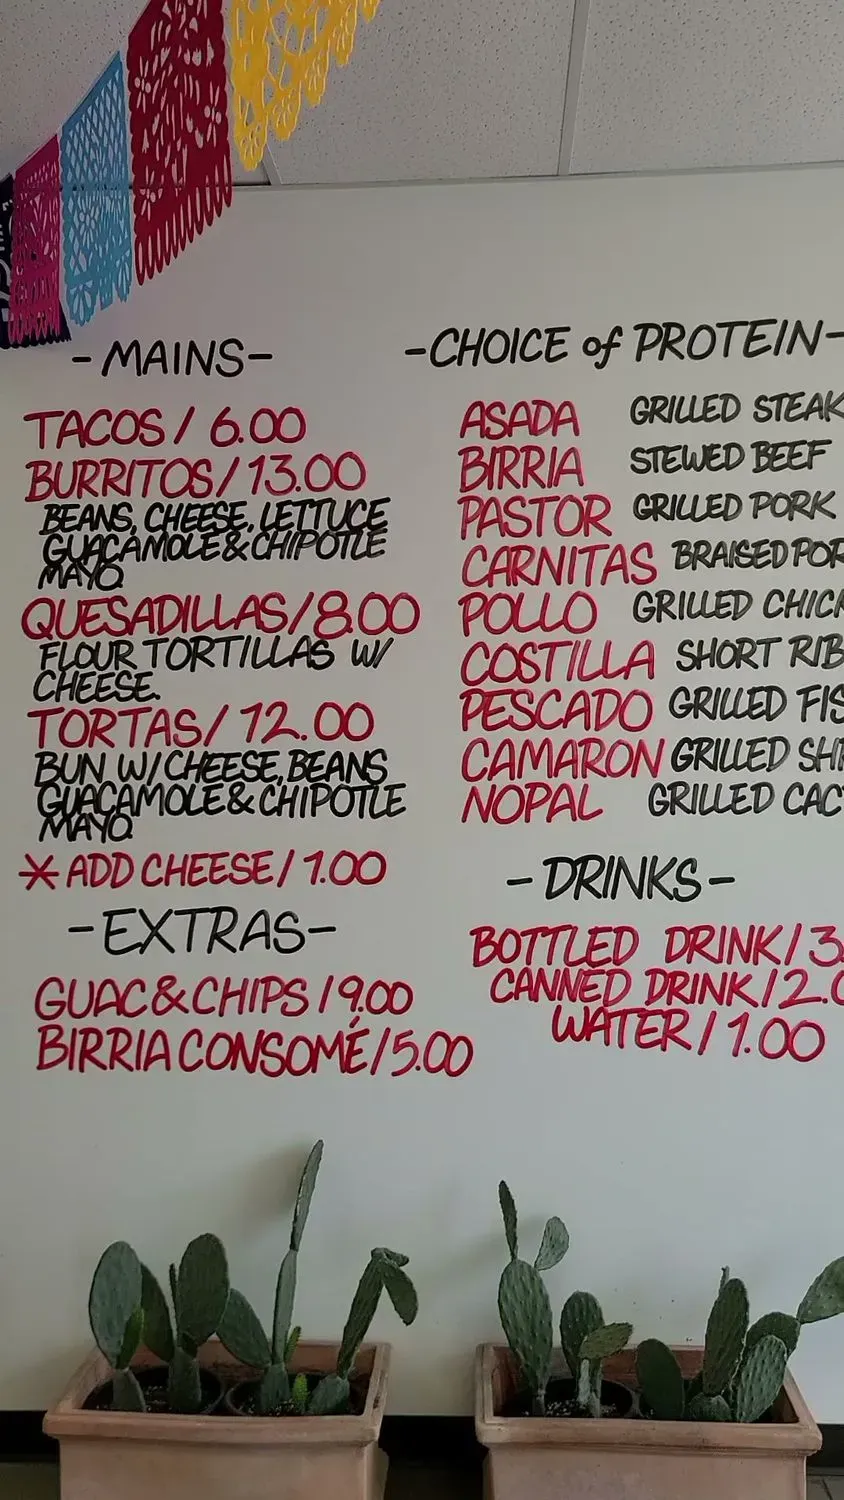 -MAINS-
TACOS / 6.00
BURRITOS / 13.00
BEANS, CHEESE, LETTUCE
GUACAMOLE & CHIPOTLE
MAYO.
QUESADILLAS / 8.00
FLOUR TORTILLAS W/
CHEESE.
TORTAS / 12.00
BUN W/ CHEESE, BEANS
GUACAMOLE & CHIPOTLE
MAYO.
* ADD CHEESE / 1.00
-EXTRAS-
GUAC & CHIPS / 9.00
BIRRIA CONSOMÉ / 5.00
-CHOICE of PROTEIN-
ASADA GRILLED STEAK
BIRRIA STEWED BEEF
PASTOR GRILLED PORK
CARNITAS BRAISED
POLLO GRILLED
COSTILLA SHORT RIB
PESCADO GRILLED
CAMARON GRILLED
NOPAL GRILLED
-DRINKS-
BOTTLED DRINK / 3.
CANNED DRINK / 2.0
WATER / 1.00